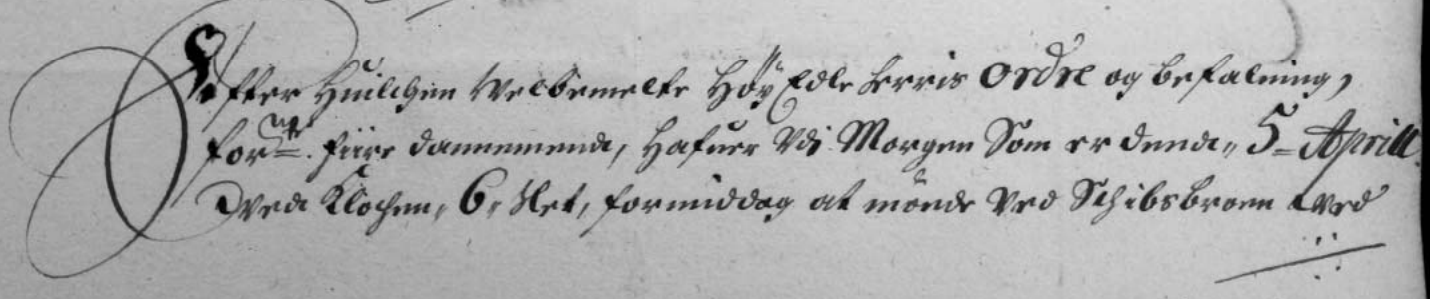 Efter Huilchen Velbemelte Höy Edle herris Ordre og befalning,
for.ne fiire dannemend, hafuer Vdi Morgen Som er dend,, 5 = Aprill
Ved Klochen, 6, Slet, formiddag at mönde Ved Schibsbroen Ved